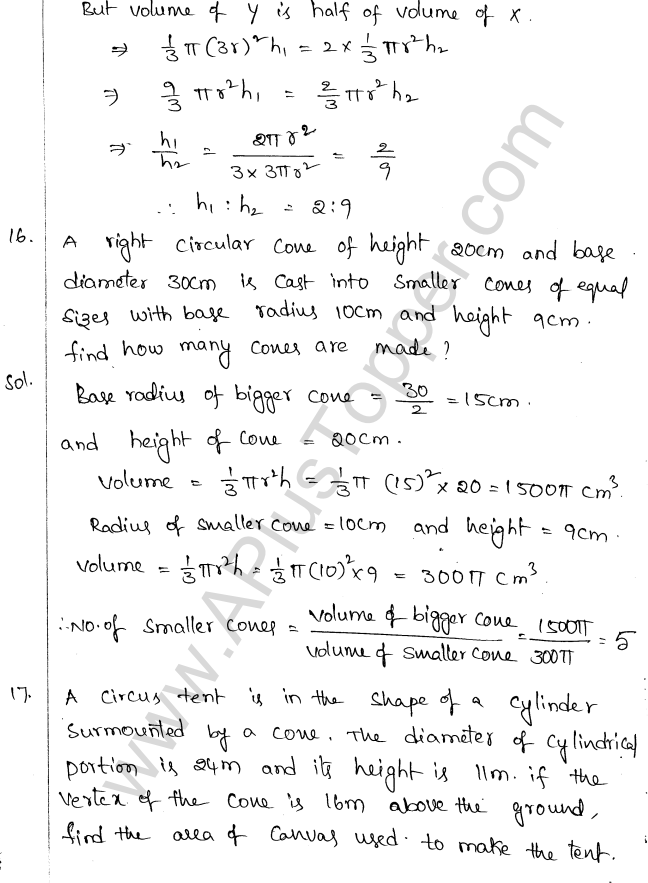 But volume of Y is half of volume of X.
⇒ 1/3 π (3r)² h₁ = 2 × 1/3 πr² h₂
⇒ 9/3 πr² h₁ = 2/3 πr² h₂
⇒ h₁/h₂ = 2πr²/(3×3πr²) = 2/9
∴ h₁ : h₂ = 2:9
16. A right circular cone of height 20cm and base
diameter 30cm is cast into smaller cones of equal
sizes with base radius 10cm and height 9cm.
find how many cones are made?
Sol. Base radius of bigger cone = 30/2 = 15cm.
and height of cone = 20cm.
Volume = 1/3 πr²h = 1/3 π (15)² × 20 = 1500π cm³.
Radius of smaller cone = 10cm and height = 9cm.
Volume = 1/3 πr²h = 1/3 π(10)² × 9 = 300π cm³.
∴ No. of smaller cones = volume of bigger cone/volume of smaller cone = 1500π/300π = 5
17. A circus tent is in the shape of a cylinder
surmounted by a cone. The diameter of cylindrical
portion is 24m and its height is 11m. if the
vertex of the cone is 16m above the ground,
find the area of canvas used to make the tent.
www.APlusTopper.com